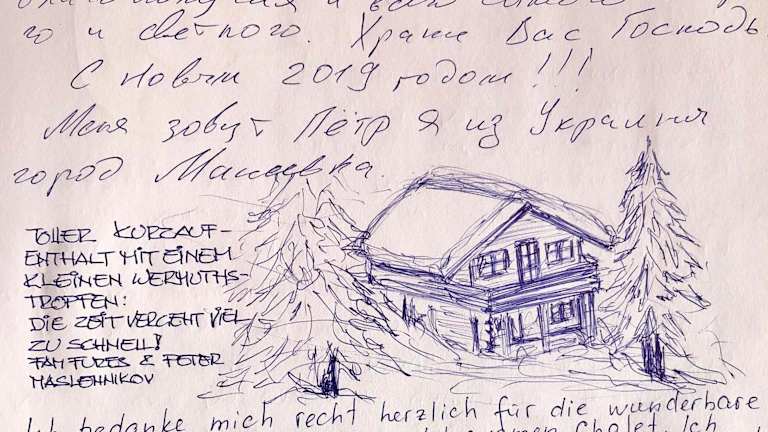 благополучия и всего самого
го и светлого. Храни Вас Господь
С Новым 2019 годом!!!
Меня зовут Пётр Я из Украины
город Макеевка.
TOLLER KURZAUF-
ENTHALT MIT EINEM
KLEINEN WERMUTHS-
TROPFEN:
DIE ZEIT VERGEHT VIEL
ZU SCHNELL!
FAM FURES & PETER
MASLENNIKOV
Ich bedanke mich recht herzlich für die wunderbare
Chalet. Ich